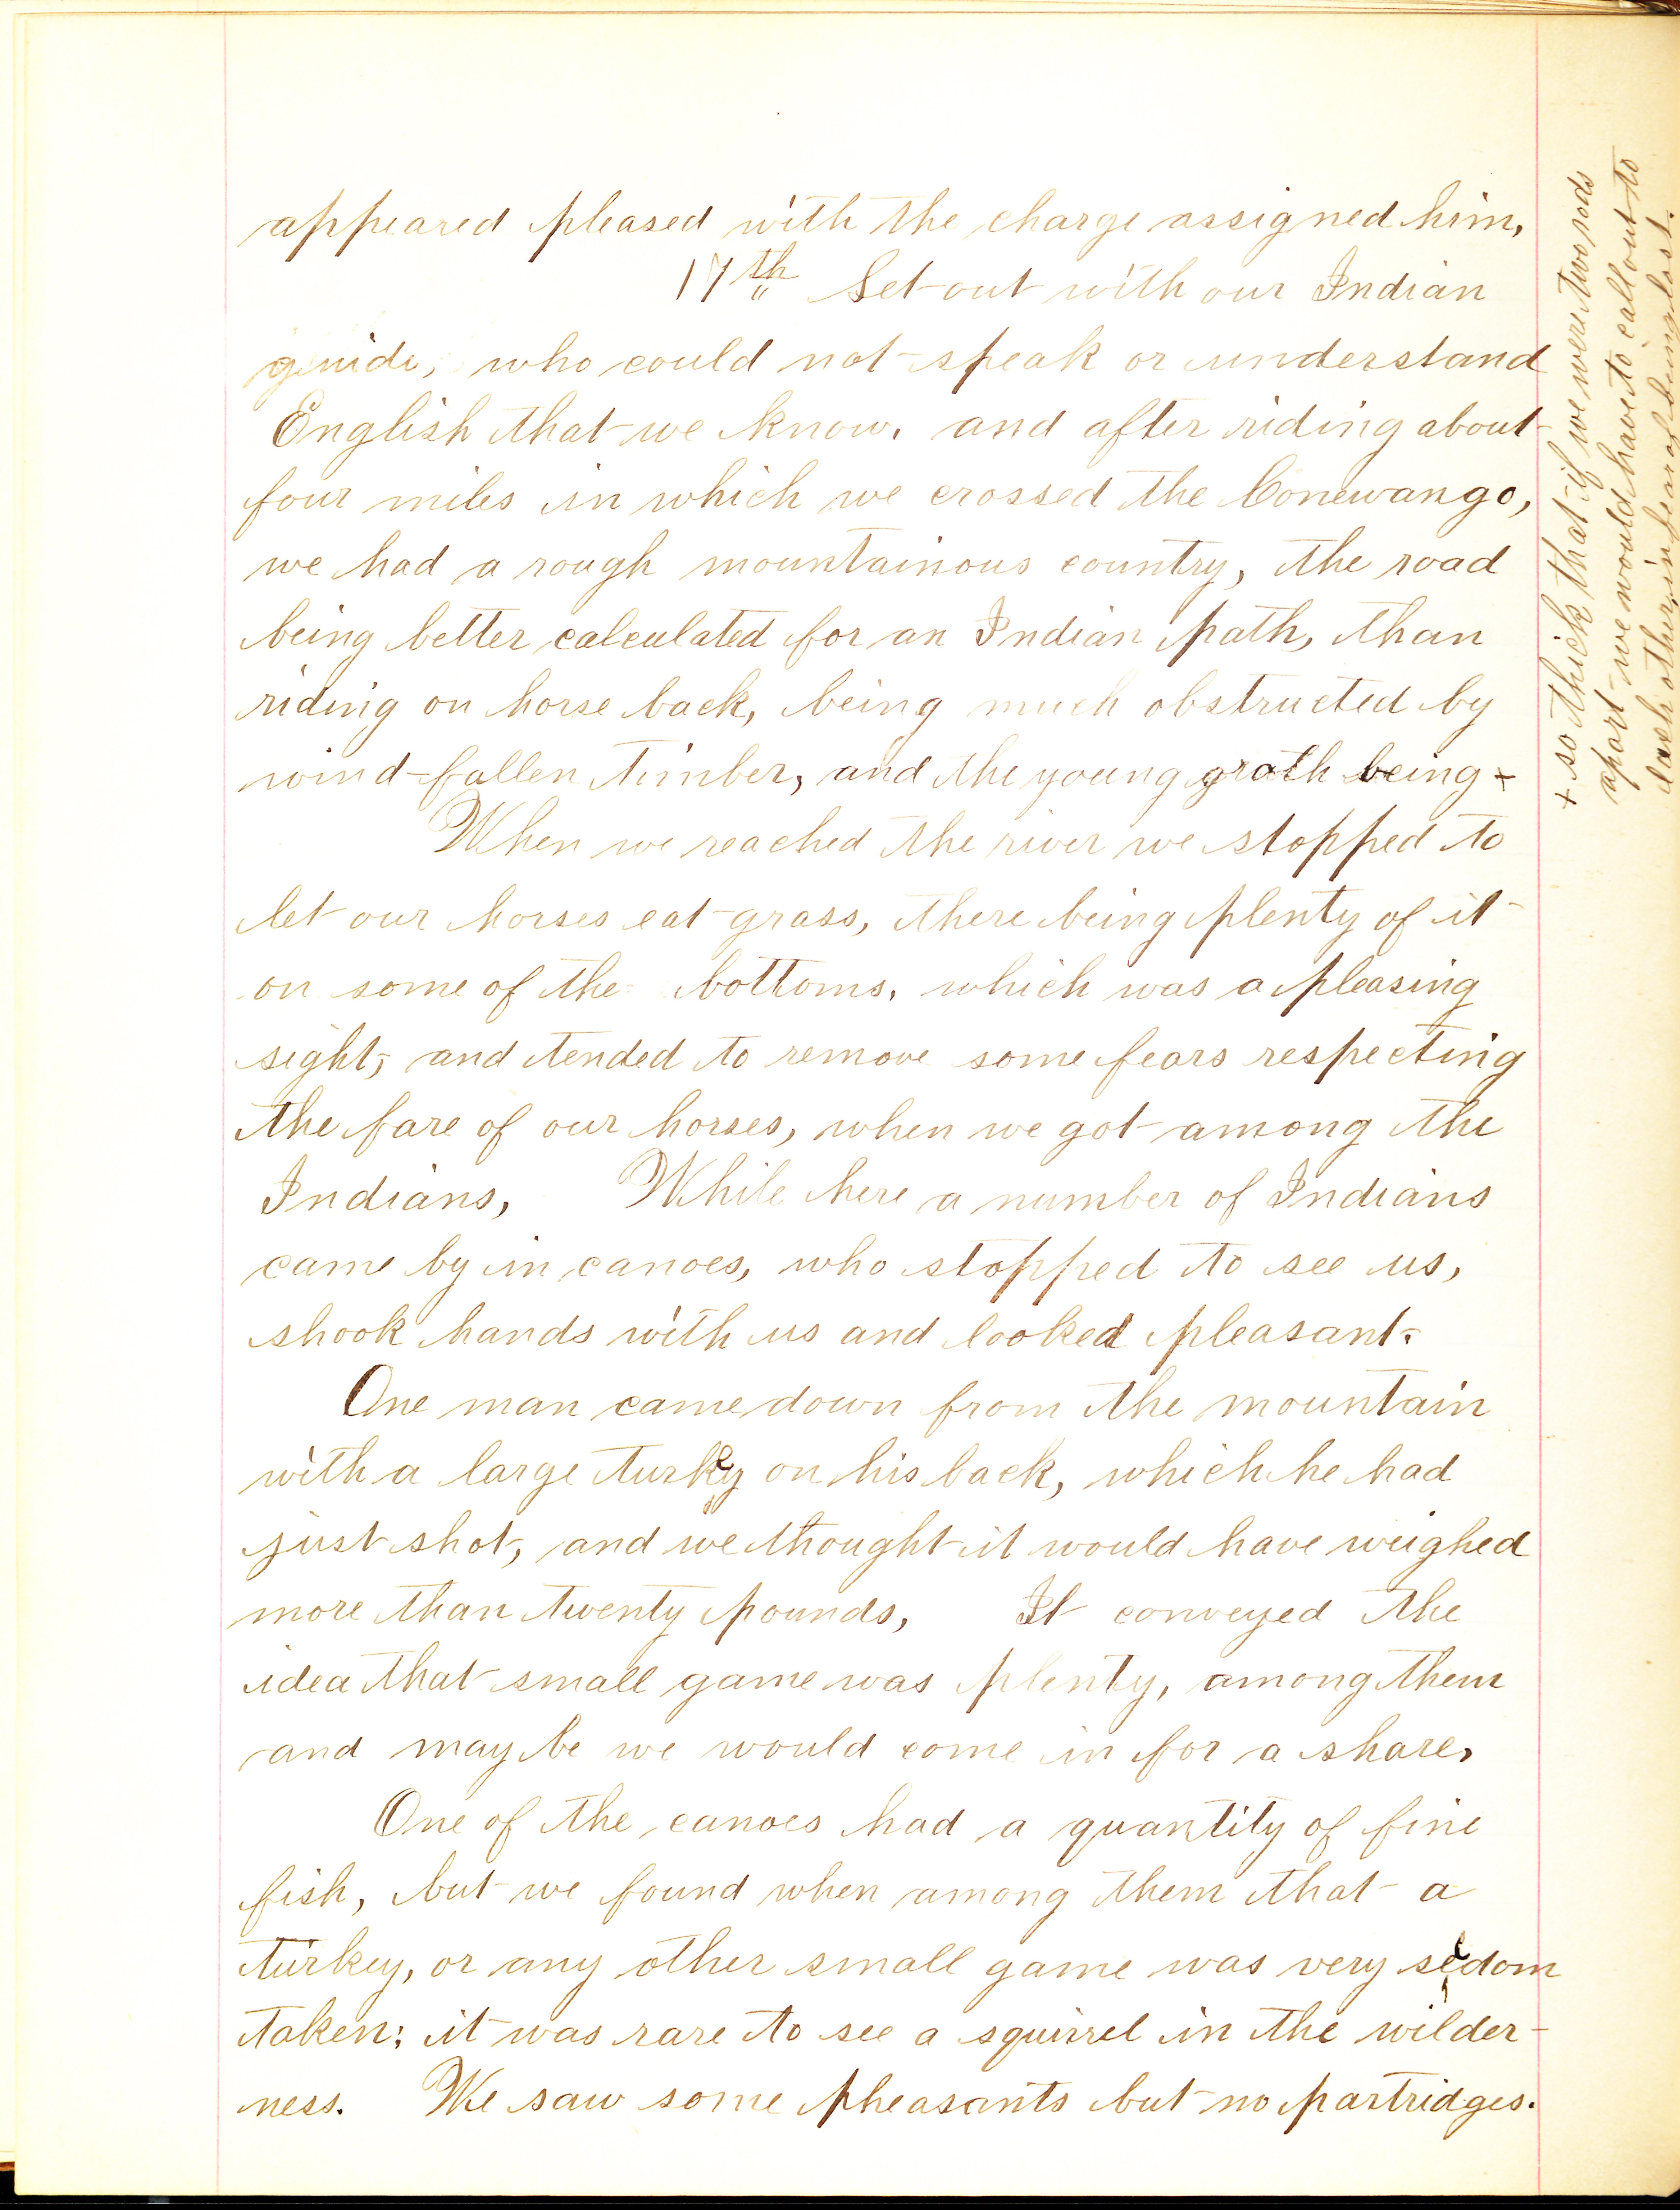 appeared pleased with the charge assigned him,
17th Set out with our Indian
guide, who could not speak or understand
English that we know, and after riding about
four miles in which we crossed the Conewango,
we had a rough mountainous country, the road
being better calculated for an Indian path, than
riding on horse back, being much obstructed by
wind-fallen timber, and the young groth being +
When we reached the river we stopped to
let our horses eat grass, there being plenty of it
on some of the bottoms, which was a pleasing
sight, and tended to remove some fears respecting
the fare of our horses, when we got among the
Indians, While here a number of Indians
came by in canoes, who stopped to see us,
shook hands with us and looked pleasant.
One man came down from the mountain
with a large turkey on his back, which he had
just shot, and we thought it would have weighed
more than twenty pounds, It conveyed the
idea that small game was plenty, among them
and may be we would come in for a share,
One of the canoes had a quantity of fine
fish, but we found when among them that a
turkey, or any other small game was very seldom
taken; it was rare to see a squirrel in the wilder-
ness. We saw some pheasants but no partridges.
+ so thick that if we were two rods
apart we would have to call out to
each other, in fear of being lost.